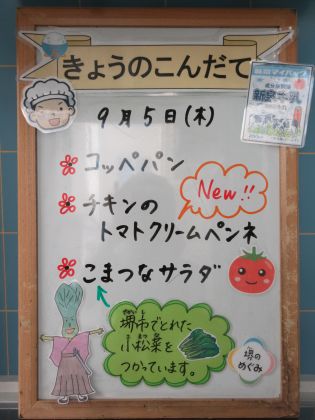 きょうのこんだて
9月5日(木)
コッペパン
New!!
チキンの
トマトクリームペンネ
こまつなサラダ
堺市でとれた
小松菜を
つかっています。
堺の
めぐみ